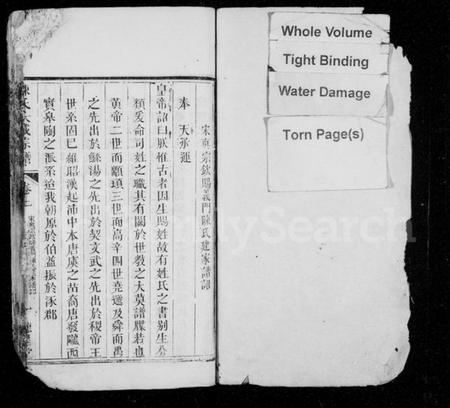 宋真宗欽賜義門陳氏建家譜詔
奉 天承運
皇帝詔曰朕惟古者因生賜姓故有姓氏之書别生分
類爰命司姓之職其有關於世敎之大莫譜牒若也
黄帝二世而顓頊三世而高辛四世堯遜及舜而禹
之先出於鯀湯之先出於契文武之先出於稷帝王
世系固已羅昭漢起沛中本唐虞之苗裔唐發隴西
實皋陶之派系逭我朝原於伯益振於涿郡
陳氏大成宗譜
卷
Whole Volume
Tight Binding
Water Damage
Torn Page(s)
FamilySearch